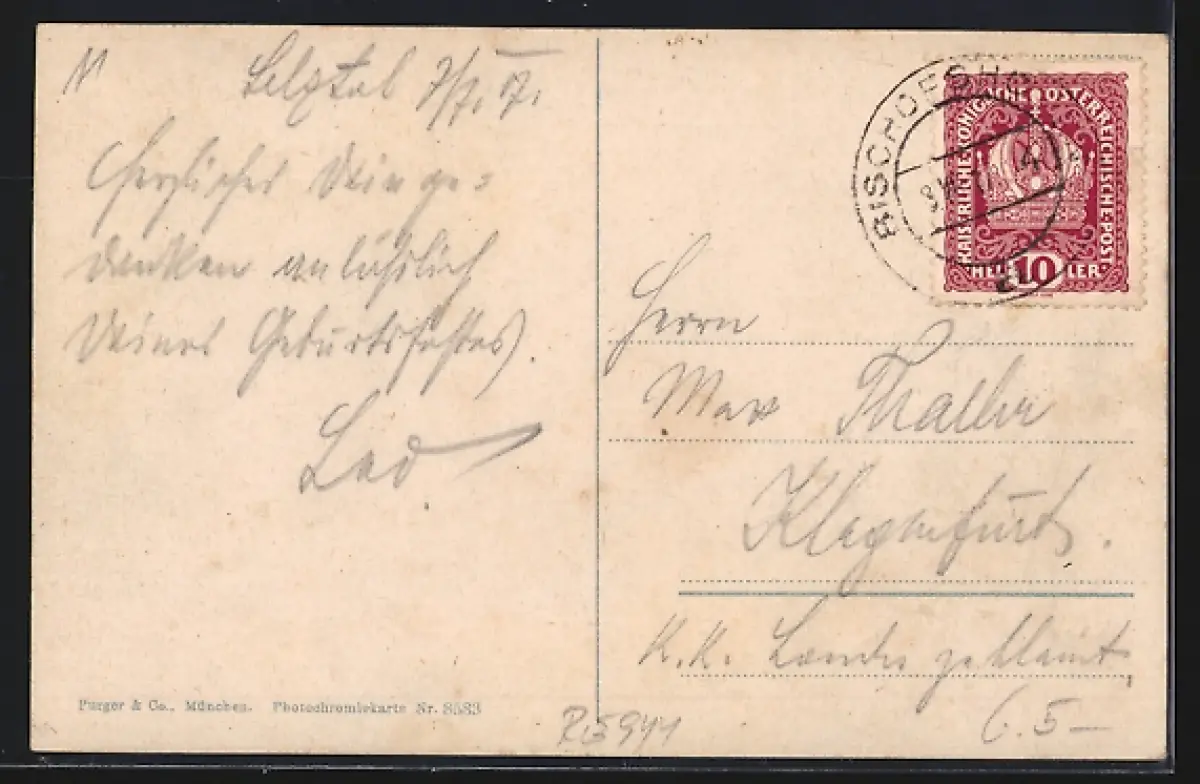 Selztal 7/7. 17.
Herzliches Deinge=
denken anläßlich
Deines Geburtsfestes
Leo
Purger & Co., München. Photochromiekarte Nr. 8583
BISCHOFSHO
8.VII.17
KAISERLICHE·KÖNIGLICHE ÖSTERREICHISCHE·POST
HELLER
10
Herrn
Max Thaller
Klagenfurt.
K.K. Landes
R5941
6.5—